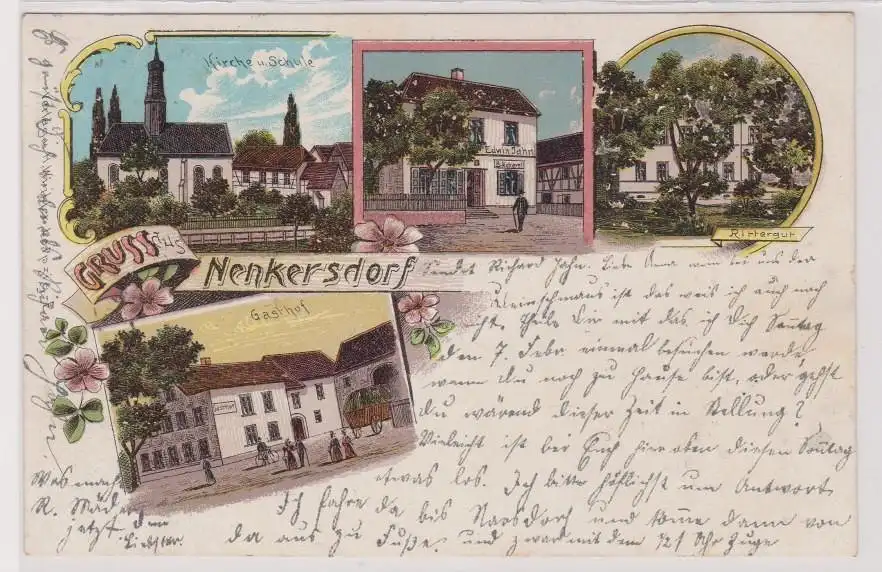 Kirche u. Schule
Edwin Jahn
Bäckerei
Rittergut
GRUSS aus
Nenkersdorf
Gasthof
Sendet Richard Jahn. Liebe Anna wenn bei uns der
ist das weis ich auch noch
nicht, Theile Dir mit das ich Dich Sonntag
den 7. Febr. einmal besuchen werde
wenn du noch zu Hause bist, oder gehst
du wärend dieser Zeit in Stellung?
Vieleicht ist bei Euch hier oben diesen Sonntag
etwas los. Ich bitte höflichst um Antwort
Ich fahre da bis Narsdorf und komme dann von
da aus zu Fuße. und zwar mit dem 1/2 1 Uhr Zuge
Was macht
R. Mader
jetzt dein
Liebster.